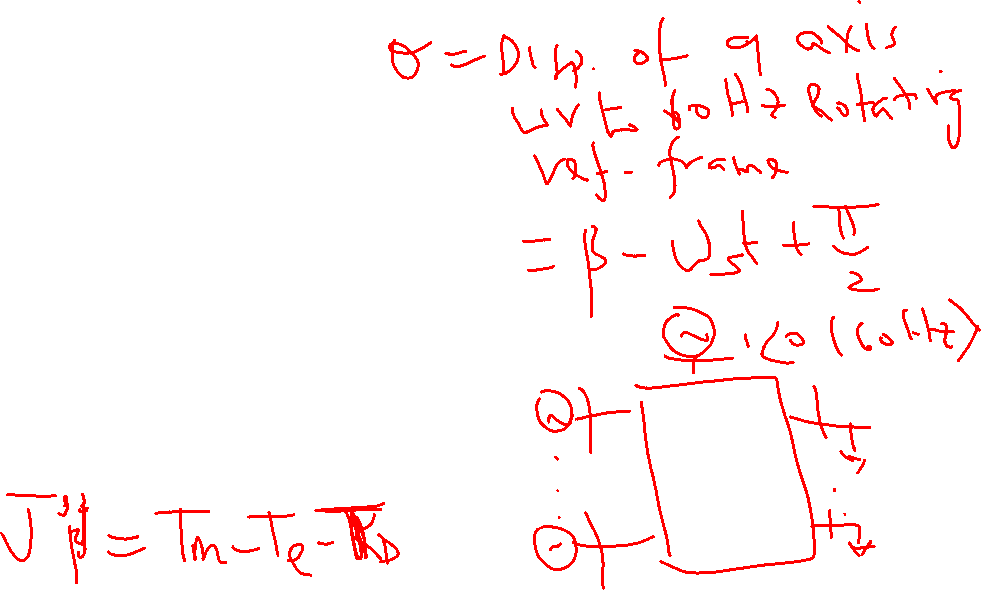 σ = Disp. of q axis
wrt. 60 Hz Rotating
ref. frame
= β - ω_s t + π/2
1∠0 (60Hz)
J β̈ = Tm - Te - T_D